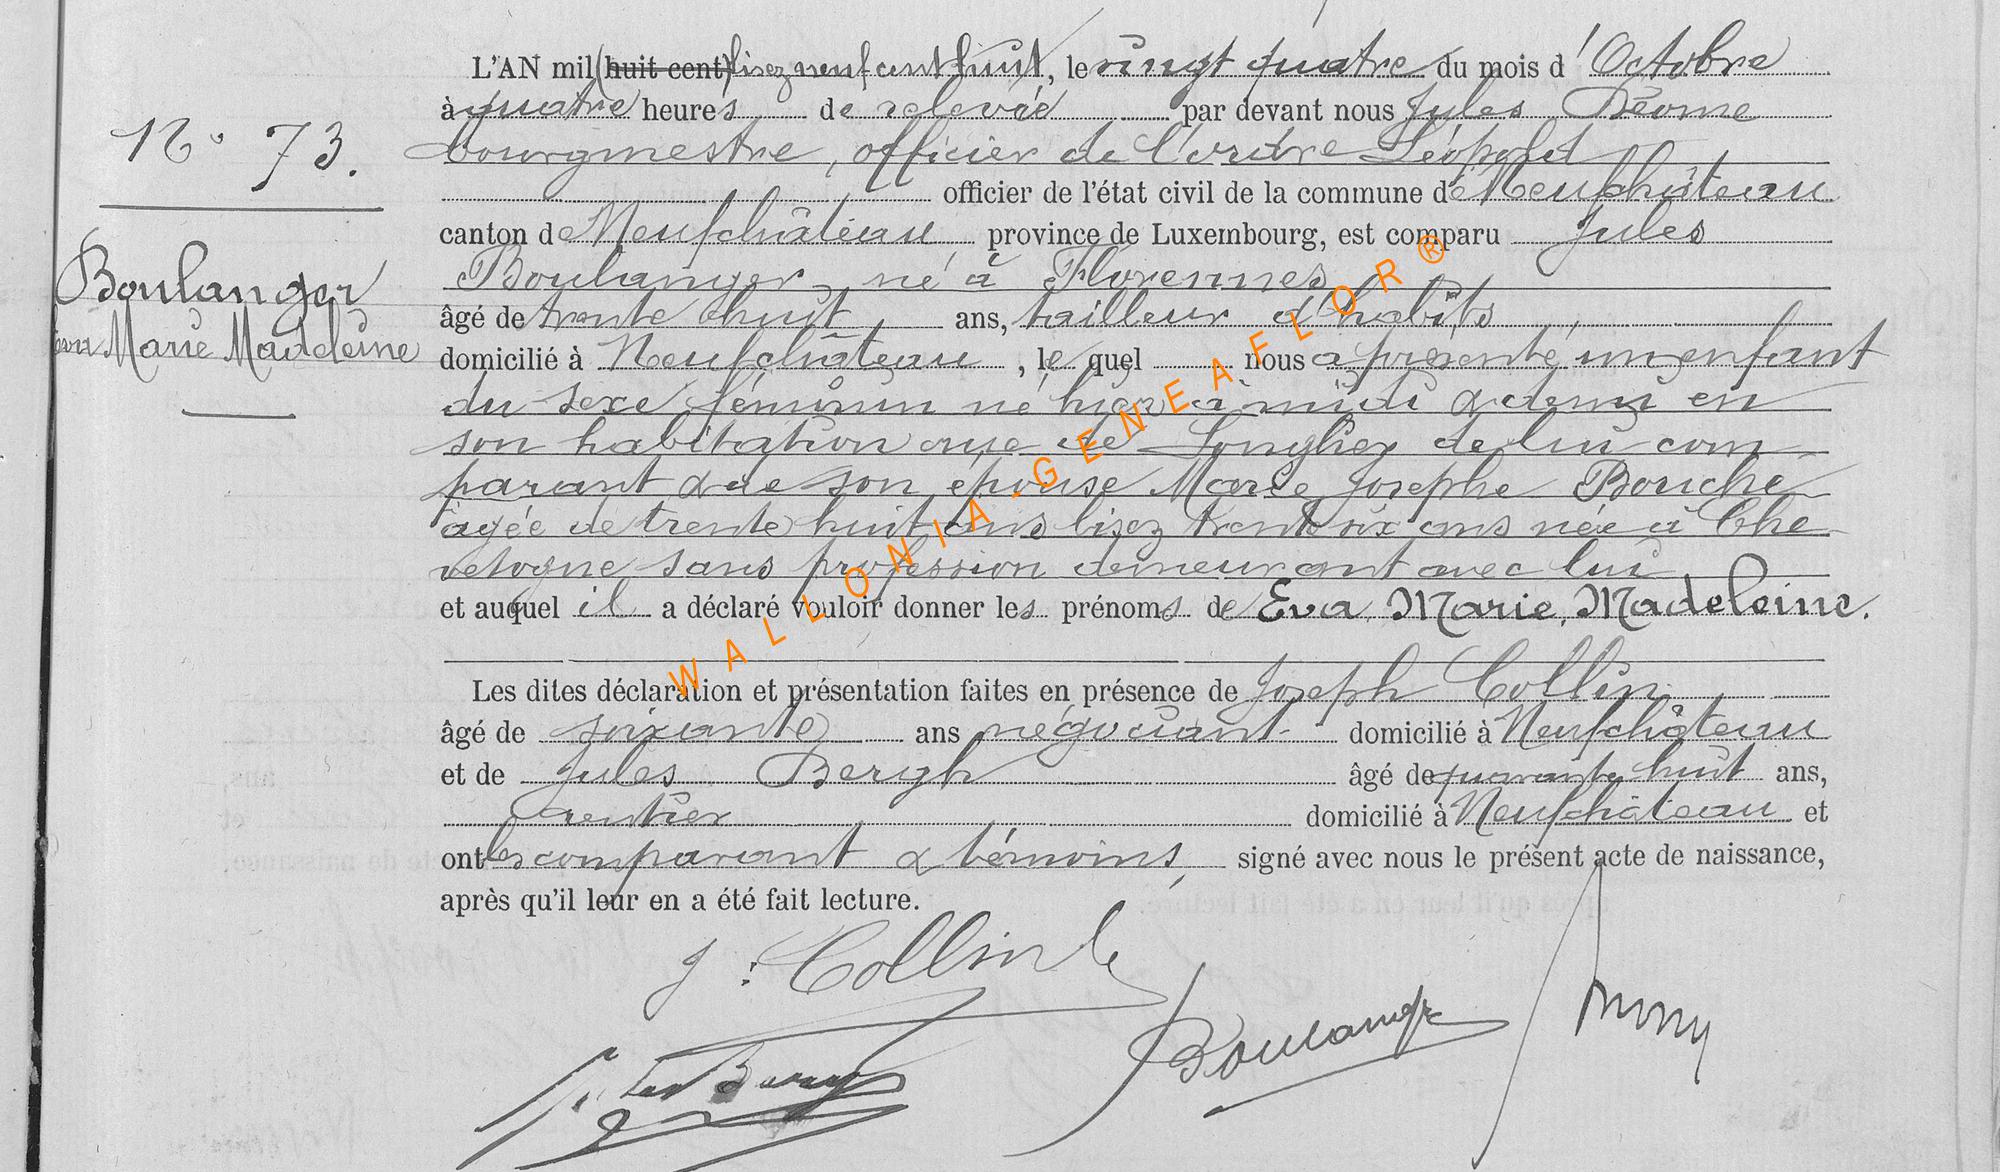 N° 73.
Boulanger
Eva Marie Madeleine
L'AN mil (huit cent) lisez neuf cent huit, le vingt quatre du mois d'Octobre
à quatre heures de relevée par devant nous Jules
bourgmestre, officier de l'ordre Léopold
officier de l'état civil de la commune de Neufchâteau
canton de Neufchâteau province de Luxembourg, est comparu Jules
Boulanger, né à Florennes
âgé de trente huit ans, tailleur d'habits
domicilié à Neufchâteau, le quel nous a présenté un enfant
du sexe féminin né hier à midi & demi en
son habitation rue de Longlier de lui com
parant & de son épouse Marie Josephe Bouché
agée de trente huit ans lisez trente six ans née à Che
vetogne sans profession demeurant avec lui
et auquel il a déclaré vouloir donner les prénoms de Eva, Marie, Madeleine.
Les dites déclaration et présentation faites en présence de Joseph Collin
âgé de soixante ans négociant domicilié à Neufchâteau
et de Jules Bergh âgé de quarante huit ans,
rentier domicilié à Neufchâteau et
ont les comparant & témoins, signé avec nous le présent acte de naissance,
après qu'il leur en a été fait lecture.
J. Collin
Boulanger
WALLONIA-GENEAFLOR®